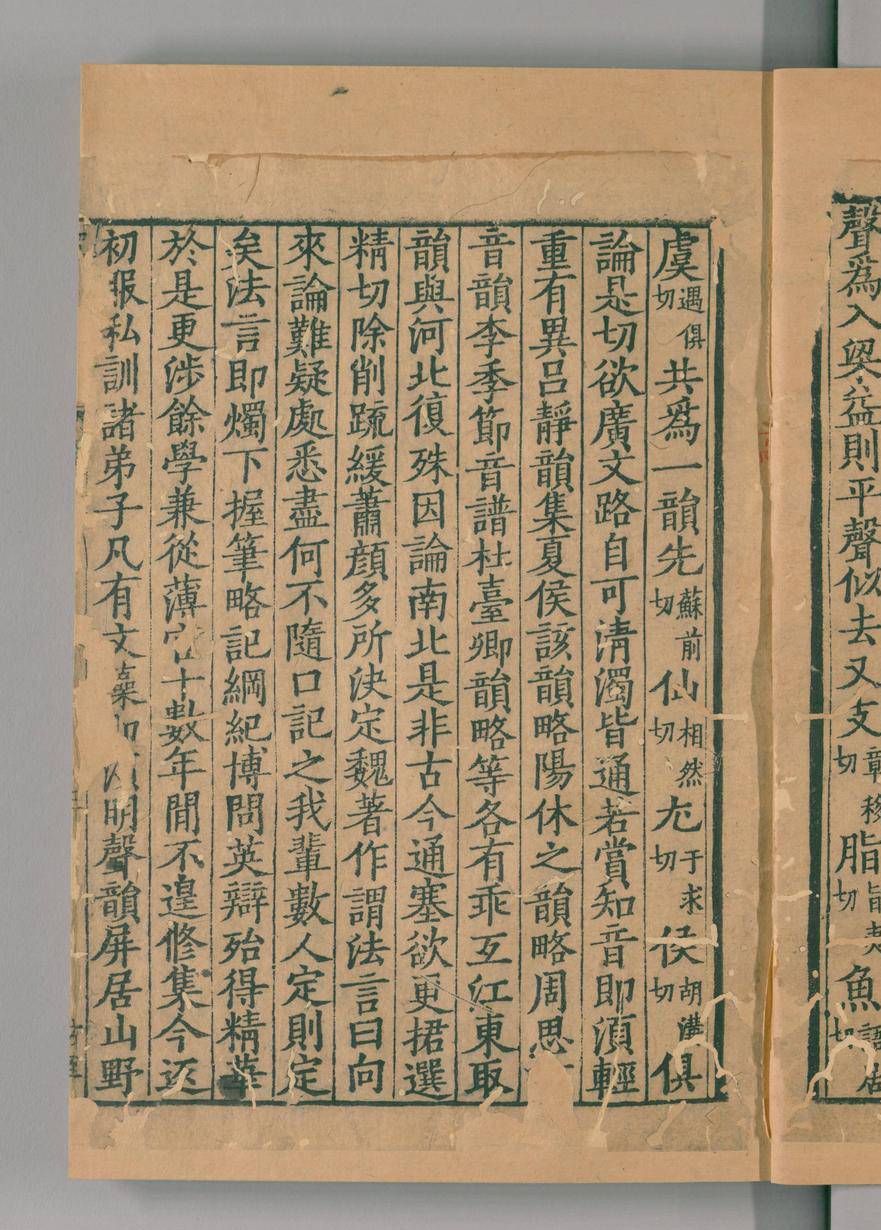 聲爲入梁益則平聲似去又支章移切脂旨夷切魚語居切
虞遇俱切共爲一韻先蘇前切仙相然切尤于求切侯胡溝切俱
論是切欲廣文路自可清濁皆通若賞知音即須輕
重有異呂靜韻集夏侯該韻略陽休之韻略周思
音韻李季節音譜杜臺卿韻略等各有乖互江東取
韻與河北復殊因論南北是非古今通塞欲更捃選
精切除削疏緩蕭顏多所決定魏著作謂法言曰向
來論難疑處悉盡何不隨口記之我輩數人定則定
矣法言即燭下握筆略記綱紀博問英辯殆得精華
於是更涉餘學兼從薄宦十數年閒不遑修集今返
初服私訓諸弟子凡有文藻即須明聲韻屏居山野